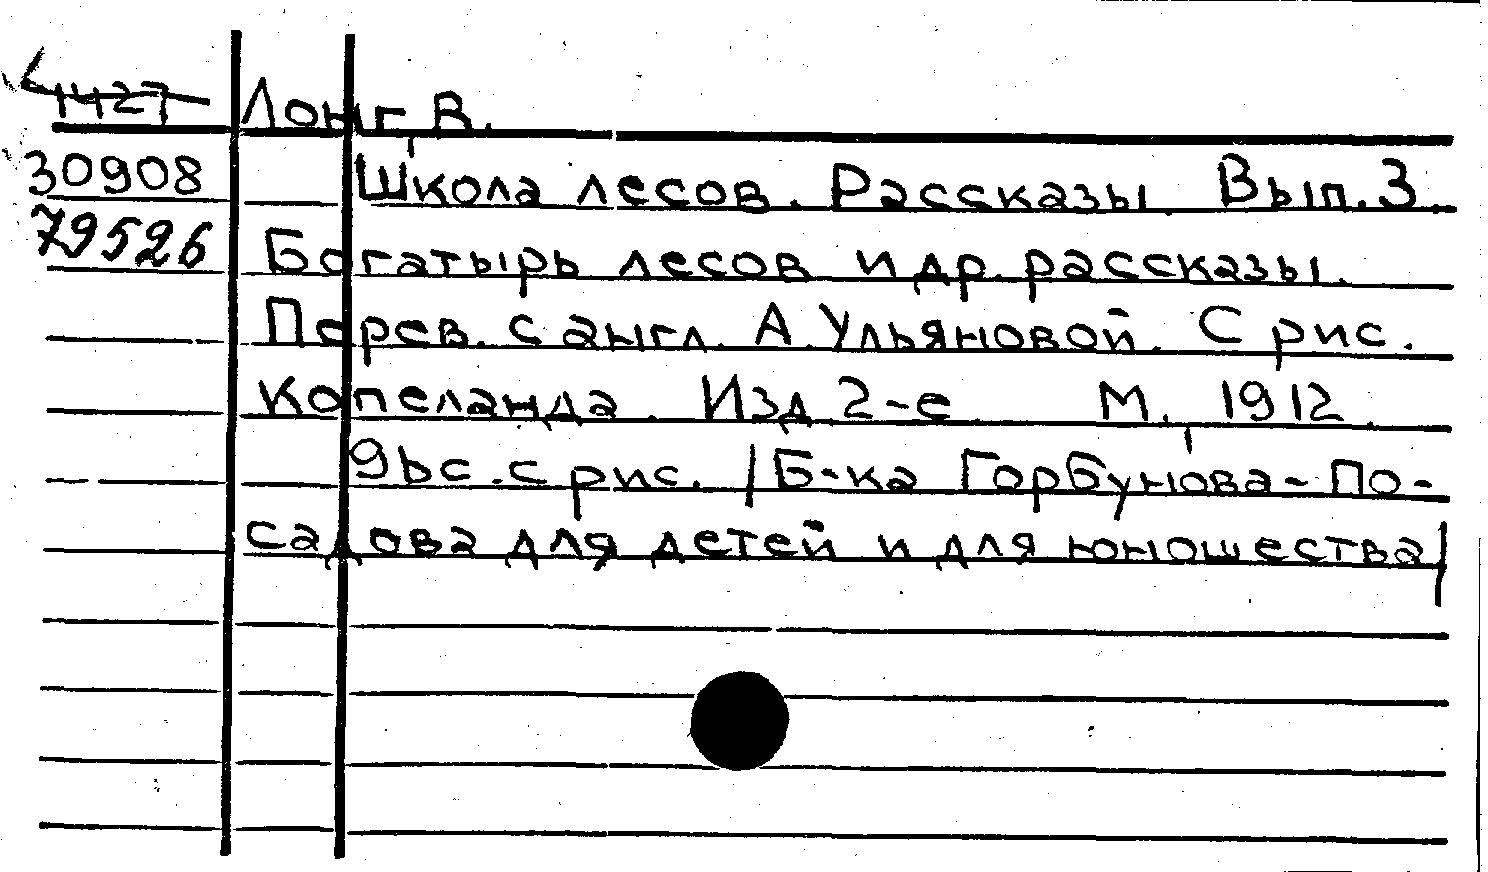 1427 Лонг, В.
30908 Школа лесов. Рассказы. Вып. 3.
79526 Богатырь лесов и др. рассказы.
Перев. с англ. А. Ульяновой. С рис.
Копеланда. Изд 2-е М., 1912.
96с. с рис. /Б-ка Горбунова-По-
садова для детей и для юношества/